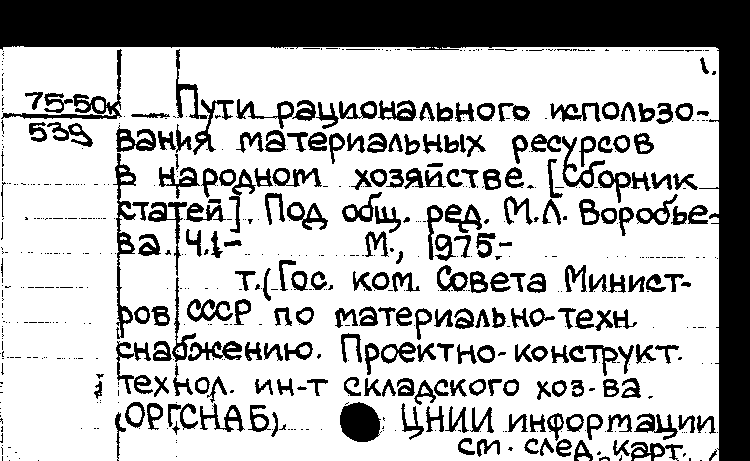 1.
75-50к Пути рационального использо-
539 вания материальных ресурсов
в народном хозяйстве. [Сборник
статей]. Под общ. ред. М.Л. Воробье-
ва. Ч.1- М., 1975.-
т.(Гос. ком. Совета Минист-
ров СССР по материально-техн.
снабжению. Проектно-конструкт.
технол. ин-т складского хоз-ва.
(ОРГСНАБ). ЦНИИ информации
см. след. карт.